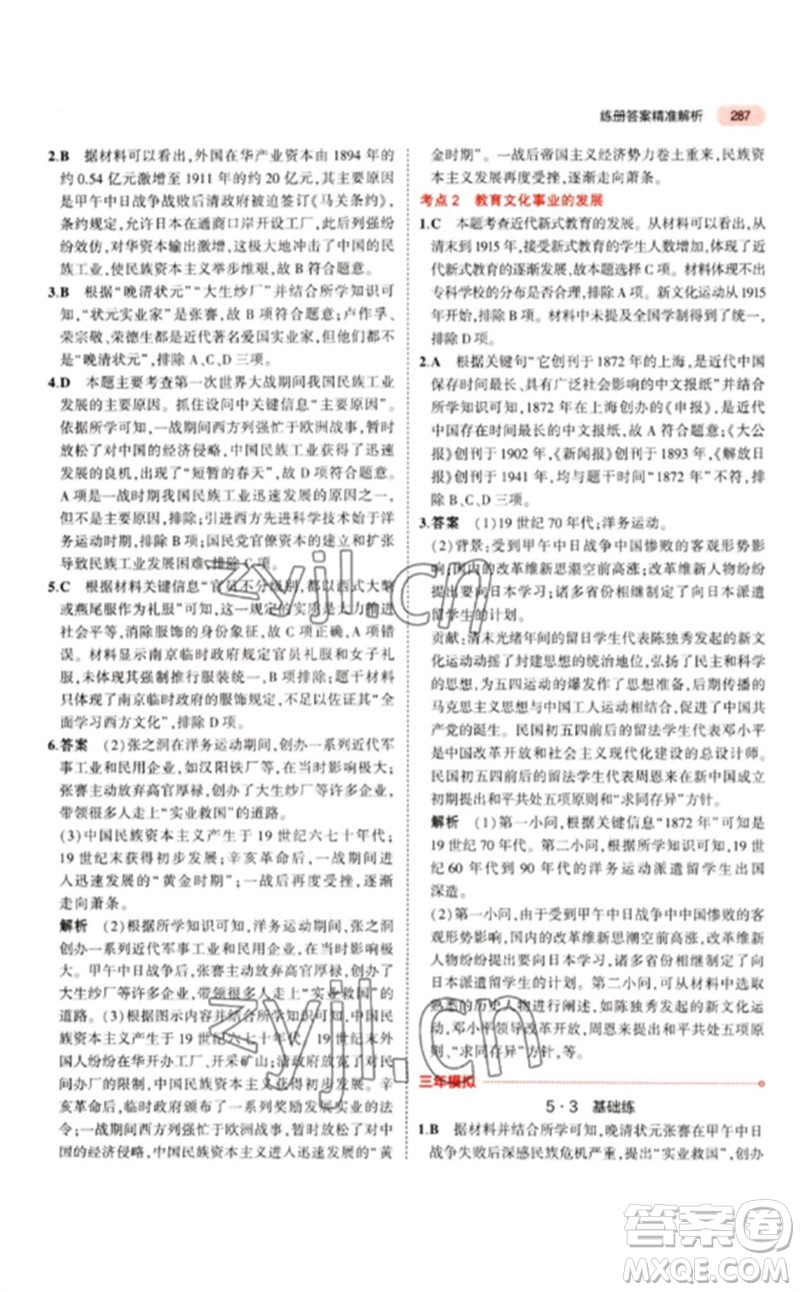 练册答案精准解析 287
2.B 据材料可以看出,外国在华产业资本由 1894 年的
约 0.54 亿元激增至 1911 年的约 20 亿元,其主要原因
是甲午中日战争战败后清政府被迫签订《马关条约》,
条约规定,允许日本在通商口岸开设工厂,列强纷
纷效仿,对华资本输出激增,极大地冲击了中国的民族
工业,使民族资本主义举步维艰,故 B 符合题意。
3.B 根据“晚清状元”“大生纱厂”并结合所学知识可
知,“状元实业家”是张謇,故 B 项符合题意;卢作孚、
荣宗敬、荣德生都是近代著名爱国实业家,但他们都不
是“晚清状元”,排除 A、C、D 三项。
4.D 本题主要考查第一次世界大战期间我国民族工业
发展的主要原因。抓住设问中关键信息“主要原因”。
依据所学知识,一战期间西方列强忙于欧洲战事,暂时
放松了对中国的经济侵略,中国民族工业获得了迅速
发展的良机,出现了“短暂的春天”,故 D 项符合题意。
A 项是一战时期我国民族工业迅速发展的原因之一,
但不是主要原因,排除;引进西方科学技术始于洋务
运动时期,排除 B 项;国民党官僚资本的建立和扩张
导致民族工业发展困难,排除 C 项。
5.C 根据材料关键信息“官员不分级别,都以西式大氅
或燕尾服作为礼服”可知,这些规定的实质是大力推进
平等,消除服饰的身份象征,故 C 项正确,A 项错
误。材料显示南京临时政府规定官员礼服和女子礼
服,未体现其强制推行服装统一,B 项排除;题干材料
只体现了南京临时政府的服饰规定,不足以佐证其“全
面学习西方文化”,排除 D 项。
6.答案 (2)张之洞在洋务运动期间,创办一系列近代军
事工业和民用企业,如汉阳铁厂等,在当时影响极大;
张謇主动放弃高官厚禄,创办了大生纱厂等,在当时影响极大,
带领很多人走上“实业救国”的道路。
(3)中国民族资本主义产生于 19 世纪六七十年代;
19 世纪末获得初步发展;辛亥革命后,一战期间进
入迅速发展的“黄金时期”;一战后再度受挫,逐渐
走向萧条。
解析 (2)根据所学知识可知,洋务运动期间,张之洞
创办一系列近代军事工业和民用企业,在当时影响极
大。甲午中日战争后,张謇主动放弃高官厚禄,创办了
大生纱厂等许多企业,在当时影响极大,带领很多人
走上“实业救国”的道路。
(3)根据图示内容并结合所学知识可知,中国民族资
本主义产生于 19 世纪六七十年代;19 世纪末外
国人纷纷在华开办工厂、开采矿山;清政府放宽对民间
办厂的限制,中国民族资本主义获得初步发展;
辛亥革命后政府颁布了一系列奖励发展实业的法令;
一战期间西方列强忙于欧洲战事,出现发展的“黄
金时期”。一战后帝国主义经济势力卷土重来,民族资
本主义发展再度受挫,逐渐走向萧条。
考点 2 教育文化事业的发展
1.C 本题考查近代新式教育的发展。从材料可以看出,从
清末到 1915 年,接受新式教育的学生人数增加,体现了近
代新式教育的逐渐发展,故本题选择 C 项。材料体现不出
专科学校的分布是否合理,排除 A 项。新文化运动从 1915
年开始,排除 B 项。材料中未提及全国学制得到了统一,
排除 D 项。
2.A 根据关键句“它创刊于 1872 年的上海,是近代中国
保存时间最长、具有广泛社会影响的中文报纸”并结合
所学知识可知,1872 年在上海创办的《申报》,是近代
中国存在时间最长的中文报纸,故 A 符合题意;《大公
报》创刊于 1902 年,《新闻报》创刊于 1893 年,《解放日
报》创刊于 1941 年,均与题干时间“1872 年”不符,
排除 B、C、D 三项。
3.答案 (1)19 世纪 70 年代;洋务运动。
(2)背景:受到甲午中日战争中国惨败的客观形势影
响,国内的改革维新思潮空前高涨;改革维新人物纷纷
提出向日本学习;诸多省份相继制定了向日本派遣
留学生的计划。
贡献:清末光绪年间的留日学生代表陈独秀发起的新文
化运动动摇了封建思想的统治地位,弘扬了民主和科学
精神,为五四运动的爆发起了宣传作用;后期传播的
马克思主义思想与中国工人运动相结合,促进了中国共
产党的诞生。民国初五四前的留法学生代表邓小平
是中国改革开放和社会主义现代化建设的总设计师。
民国初五四前的留法学生代表周恩来在新中国成立
初期提出和平共处五项原则和“求同存异”方针。
解析 (1)第一小问,根据关键信息“1872 年”可知是
19 世纪 70 年代。第二小问,结合所学知识可知,19
世纪 60 年代到 90 年代的洋务运动派遣留学生出国
深造。
(2)第一小问,由于受到甲午中日战争中中国惨败的客
观形势影响,国内的改革维新思潮空前高涨,改革维新
人物纷纷提出向日本学习,诸多省份相继制定了向日本
派遣留学生的计划。第二小问,可从材料中选取
熟悉的历史人物进行阐述,如陈独秀发起新文化运
动,邓小平领导改革开放,周恩来提出和平共处五项原
则、“求同存异”方针,等。
三年模拟
5·3 基础练
1.B 据材料并结合所学可知,晚清状元张謇在甲午中日
战争失败后深感民族危机严重,提出“实业救国”,创办
zyjl.cn
zyjl.cn
答案圈
MXQE.COM